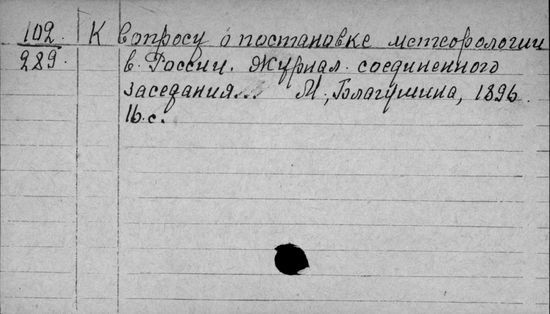 102. К вопросу о постановке метеорологии
289. в России. Журнал соединенного
заседания... М., Благушина, 1896.
16 с.